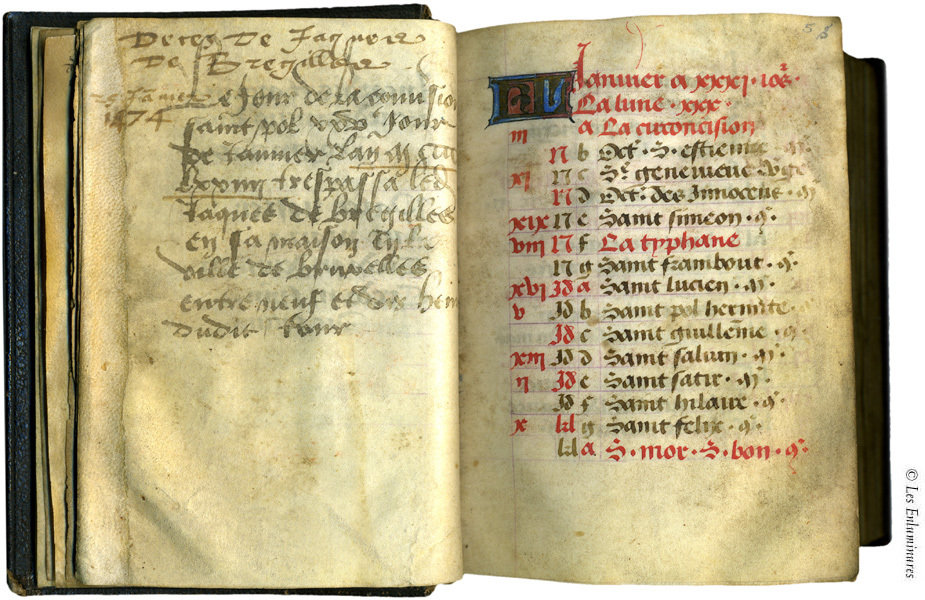 Deces De Jaques
De Bregilles
25 Janvier Le Jour de la convusion
1474
saint pol xxve Jour
de Janvier Lan m cccc
lxxiiii trespassa led
Jaques de bregilles
en sa maison en la
ville de bruxelles
entre neuf et dix heu
dudit Jour
5
KL Janvier a xxxi · iors ·
La lune · xxx ·
iii a La circoncision
N b Oct · S · estienne
xi N c Ste genevieve
N d Oct · des Innocens · m
xix N e Saint simeon · q ·
viii N f La typhane
N g Saint frambout · q ·
xvi Id a Saint lucien · m ·
v Id b Saint pol hermite ·
Id c Saint guilleme · q ·
xiii Id d Saint salvin · m ·
ii Id e Saint satir · m ·
Id f Saint hilaire · q ·
x kl g Saint felix · q ·
kl a S · mor · S · bon · q ·
© Les Enluminures